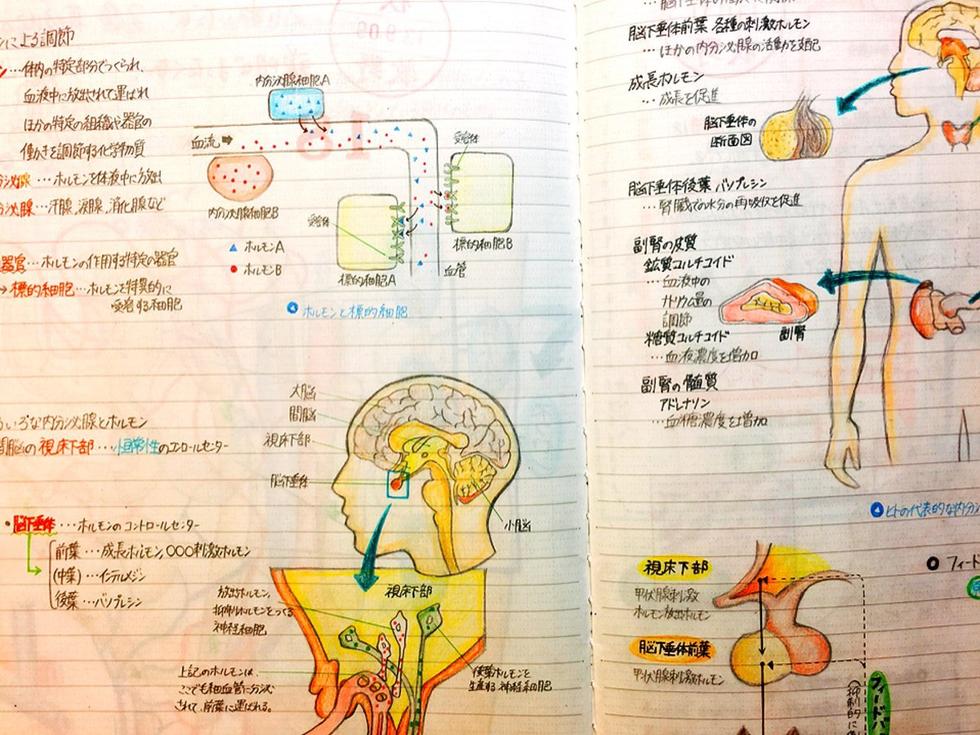 による調節
…体内の特定部分でつくられ、
血液中に放出されて運ばれ
ほかの特定の組織や器官の
働きを調節する化学物質
分泌腺…ホルモンを体液中に放出
分泌腺…汗腺、涙腺、消化腺など
器官…ホルモンの作用する特定の器官
→標的細胞…ホルモンを特異的に
受容する細胞
内分泌腺細胞A
血流
内分泌腺細胞B
受容体
受容体
標的細胞A
標的細胞B
血管
ホルモンA
ホルモンB
ホルモンと標的細胞
いろな内分泌腺とホルモン
間脳の視床下部…恒常性のコントロールセンター
大脳
間脳
視床下部
脳下垂体
小脳
・脳下垂体…ホルモンのコントロールセンター
前葉…成長ホルモン、○○○刺激ホルモン
(中葉)…インテルメジン
後葉…バソプレシン
放出ホルモン、
抑制ホルモンをつくる
神経細胞
視床下部
上記のホルモンは、
ここで毛細血管に分泌
されて、前葉に運ばれる。
後葉ホルモンを
生産する神経細胞
脳下垂体前葉 各種の刺激ホルモン
…ほかの内分泌腺の活動を支配
成長ホルモン
…成長を促進
脳下垂体の
断面図
脳下垂体後葉 バソプレシン
…腎臓での水分の再吸収を促進
副腎の皮質
鉱質コルチコイド
…血液中の
ナトリウム量の
調節
糖質コルチコイド
…血液濃度を増加
副腎
副腎の髄質
アドレナリン
…血糖濃度を増加
ヒトの代表的な内分
フィード
視床下部
甲状腺刺激
ホルモン放出ホルモン
脳下垂体前葉
甲状腺刺激ホルモン
フィードバ
(抑制的に